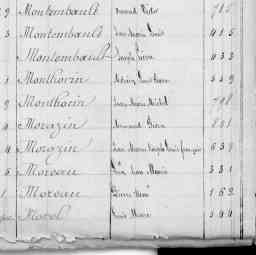 2 Montembault Victor 785
3 Montembault Jean Marie Louis 415
Montembault Joseph Pierre 433
1 Monthorin 349
9 Monthorin Jean Marie Michel 798
4 Morazin Armand Pierre 801
4 Morazin Jean Marie Joseph Louis François 639
5 Moreau Louis Marie 331
1 Moreau Pierre René 162
Morel Louis Marie 344